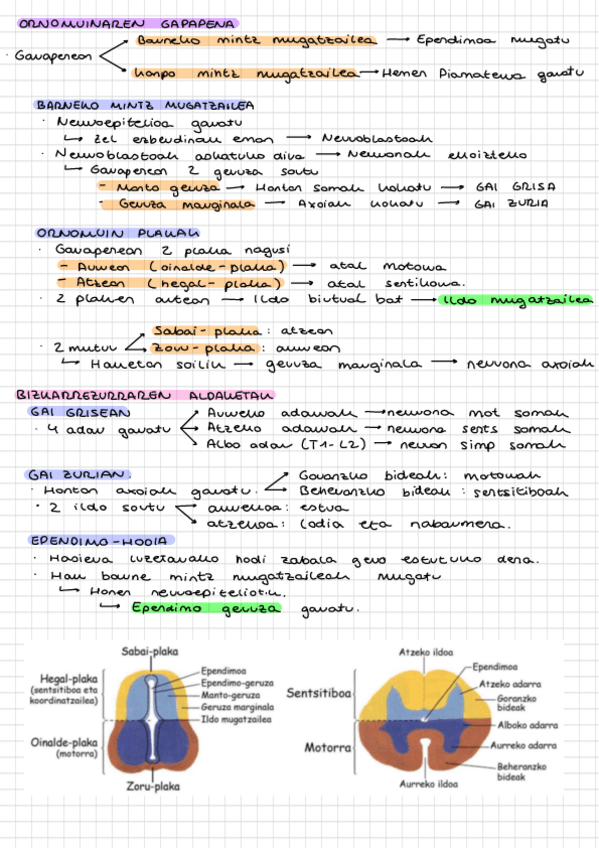 ORNOMUINAREN GARAPENA
Barneko mintz mugatzailea → Ependimoa mugatu
· Garapenean
Kanpo mintz mugatzailea → Hemen Piamatewa garatu
BARNEKO MINTZ MUGATZAILEA
· Neuroepitelioa garatu
↳ Zel ezberdinak eman → Neuroblastoak
· Neuroblastoak askatuko dira → Neuronak ekoizteko
↳ Garapenean 2 geruza sortu
- Manto geruza → Hontan somak kokatu → GAI GRISA
- Geruza marginala → Axoiak kokatu → GAI ZURIA
ORNOMUIN PLAKAK
· Garapenean 2 plaka nagusi
- Aurrean (oinalde-plaka) → atal motorra
- Atzean (hegal-plaka) → atal sentikorra.
· 2 plaken artean → Ildo birtual bat → Ildo mugatzailea
Sabai-plaka: atzean
· 2 mutur Zoru-plaka: aurrean
↳ Hauetan soilik → geruza marginala → neurona axoiak
BIZKARREZURRAREN ALDAKETAK
GAI GRISEAN
Aurreko adarrak → neurona mot somak
· 4 adar garatu Atzeko adarrak → neurona sents somak
Albo adar (T1-L2) → neuron simp somak
GAI ZURIAN.
Goranzko bideak: motorrak
· Hontan axoiak garatu. Beheranzko bideak: sentsitiboak
· 2 ildo sortu aurrekoa: estua
atzekoa: lodia eta nabarmena.
EPENDIMO-HODIA
· Hasiera luzetarako hodi zabala gero estutuko dena.
· Hau barne mintz mugatzaileak mugatu
↳ Honen neuroepiteliotik.
↳ Ependimo geruza garatu.
Sabai-plaka
Hegal-plaka
(sentsitiboa eta
koordinatzailea)
Oinalde-plaka
(motorra)
Ependimoa
Ependimo-geruza
Manto-geruza
Geruza marginala
Ildo mugatzailea
Zoru-plaka
Atzeko ildoa
Sentsitiboa
Motorra
Ependimoa
Atzeko adarra
Goranzko
bideak
Alboko adarra
Aurreko adarra
Beheranzko
bideak
Aurreko ildoa